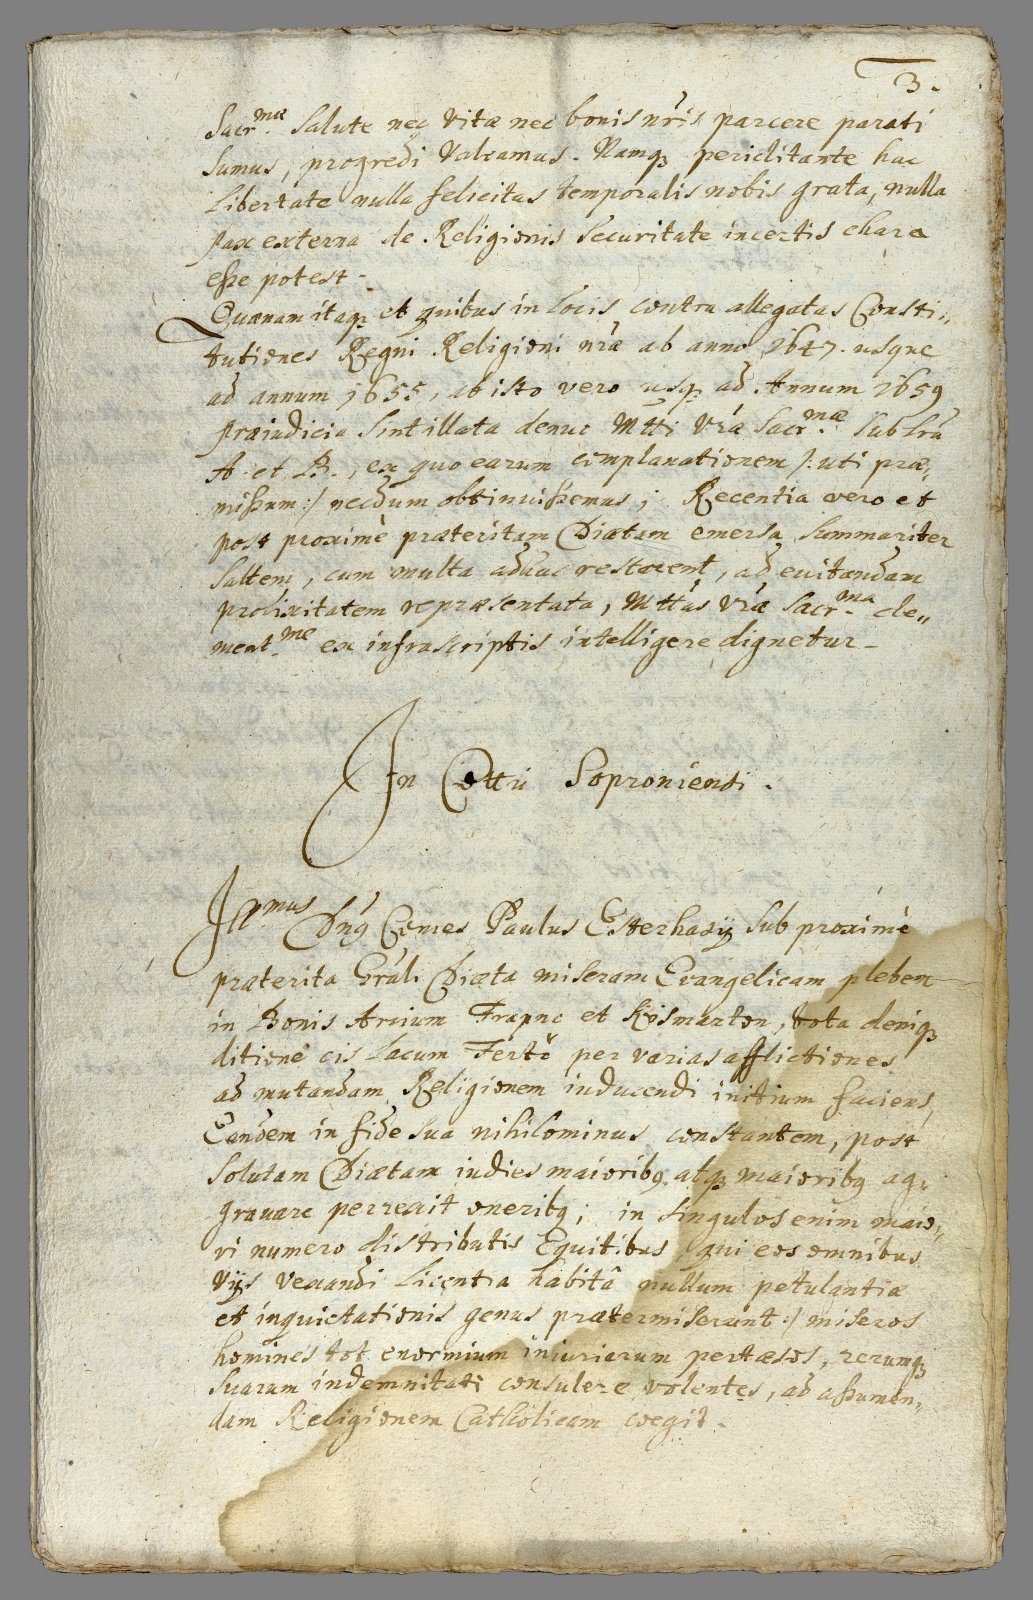 3.
Sacr.mæ Salute nec Vitæ nec bonis nr̄is parcere parati
sumus, progredi Valeamus. Namq₃ periclitante hac
Libertate nulla felicitas temporalis nobis grata, nulla
pax externa de Religionis Securitate incertis chara
esse potest.
Quænam itaq₃ et quibus in locis contra allegatas Consti„
tutiones Regni Religioni nr̄æ ab anno 1647. usque
ad annum 1655, ab isto vero usq₃ ad Annum 1659
præiudicia Sint illata denuo Mtti Vr̄æ Sacr.mæ Sub Lrā
A. et B., ex quo earum complanationem /: uti præ„
missum :/ necdum obtinuissemus; Recentia vero et
post proximè præteritam Diætam emersa Summariter
Saltem, cum multa adhuc restarent, ad euitandam
prolixitatem repræsentata, Mttas Vr̄a Sacr.ma cle„
ment.me ex infrascriptis intelligere dignetur.
In Cottū Soproniensi.
Ill.mus Dn̄s Comes Paulus Esterhasÿ sub proximè
præterita Gr̄ali Diæta miseram Evangelicam plebem
in Bonis Arcium Frapno et Kÿsmarton, tota deniq₃
ditione cis Lacum Fertő per varias afflictiones
ad mutandam Religionem inducendi initium faciens,
Eandem in fide sua nihilominus constantem, post
Solutam Diætam indies maioribꝫ atq₃ maioribꝫ ag„
grauare perrexit oneribꝫ; in singulos enim maio„
ri numero distributis Equitibus qui eos omnibus
Vijs Vexandi licentia habitâ nullum petulantiæ
et inquietationis genus prætermiserunt :/ miseros
homines tot enormium iniuriarum pertæsos, rerumq₃
suarum indemnitati consulere volentes, ad assumen„
dam Religionem Catholicam coegit.